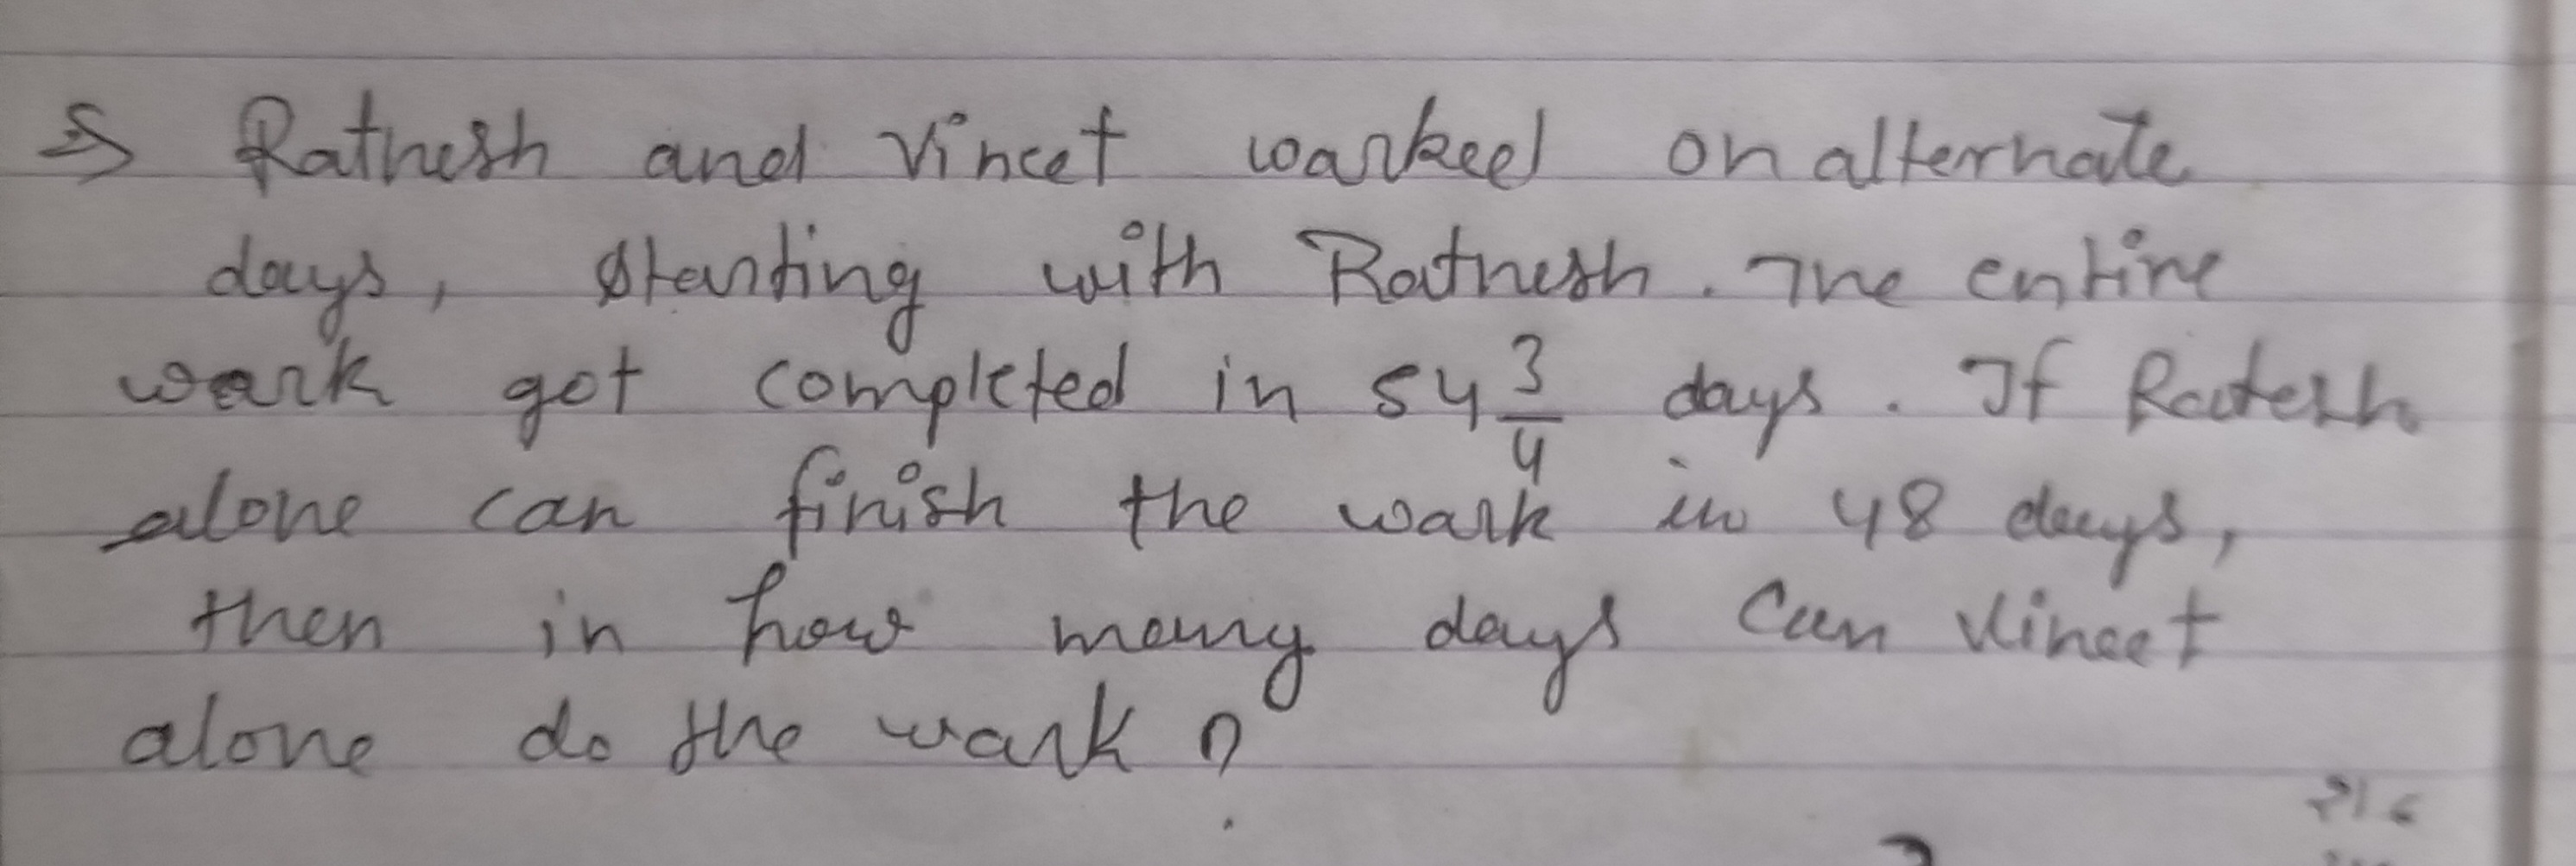 ⇒ Ratnesh and Vineet worked on alternate
days, starting with Ratnesh. The entire
work got completed in 54 3/4 days. If Ratesh
alone can finish the work in 48 days,
then in how many days can Vineet
alone do the work?